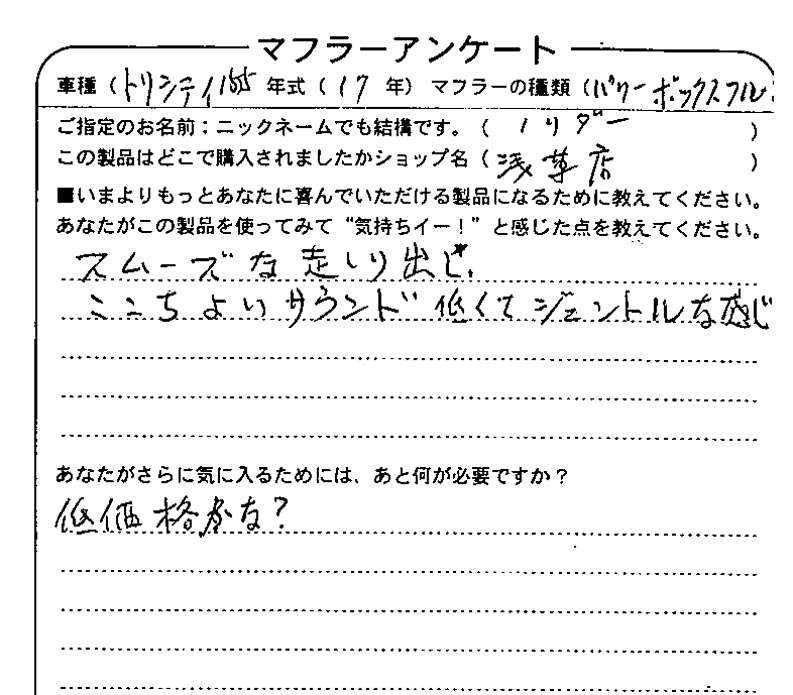 マフラーアンケート
車種（トリシティ155 年式（17 年）マフラーの種類（パワーボックスフル
ご指定のお名前：ニックネームでも結構です。（ ノリダー ）
この製品はどこで購入されましたかショップ名（ 浅草店 ）
■いまよりもっとあなたに喜んでいただける製品になるために教えてください。
あなたがこの製品を使ってみて“気持ちイー！”と感じた点を教えてください。
スムーズな走しり出し、
ここちよいサウンド 低くてジェントルな感じ
あなたがさらに気に入るためには、あと何が必要ですか？
低価格かな？